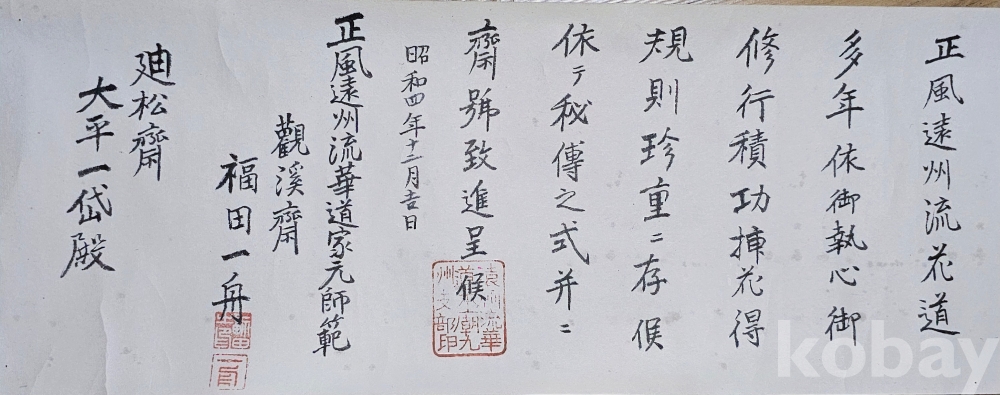 正風遠州流花道
多年依御執心御
修行積功揷花得
規則珍重ニ存候
依テ秘傳之式并ニ
齋號致進呈候
昭和四年十二月吉日
正風遠州流華道家元師範
觀溪齋
福田一舟
廸松齋
大平一岱殿
kobay